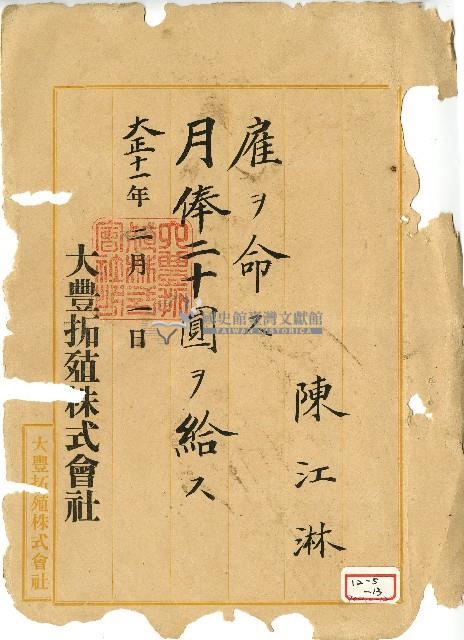 陳江淋
雇ヲ命ス
月俸二十圓ヲ給ス
大正十一年二月一日
大豐拓殖株式會社
大豐拓殖株式會社
國史館臺灣文獻館
TAIWAN HISTORICA
12-5
-13